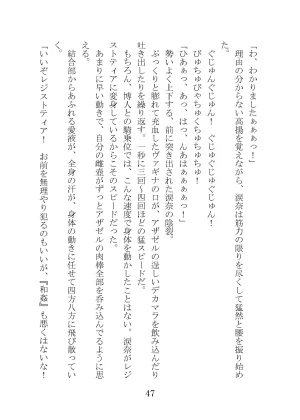 「わ、わかりましたぁぁっ！」
　理由の分からない高揚を覚えながら、涙奈は筋力の限りを尽くして猛然と腰を振り始め
た。
　ぐじゅんぐじゅん！　ぐじゅぐじゅぐじゅん！
　びゅちゅびちゃちゅくちゅちゅちゅ！
「ひあぁっ、あっ、はっ、んあはぁぁぁぁっ！」
　勢いよく上下する、前に突き出された涙奈の陰裂。
　ぷっくりと膨れて充血したヴァギナの口が、アザゼルの逞しいデカマラを飲み込んだり
吐き出したりを繰り返す。一秒に三回～四回ほどの猛スピードだ。
　もちろん、博人との騎乗位では、こんな速度で身体を動かしたことはない。涙奈がレジ
ストティアに変身しているからこそのスピードだった。
　あまりに早い動きで、自分の雌壺がずっとアザゼルの肉棒全部を呑み込んでるように思
える。
　結合部からあふれる愛液が、全身の汗が、身体の動きに任せて四方八方に飛び散ってい
く。
「いいぞレジストティア！　お前を無理やり犯るのもいいが、『和姦』も悪くはないな！
47